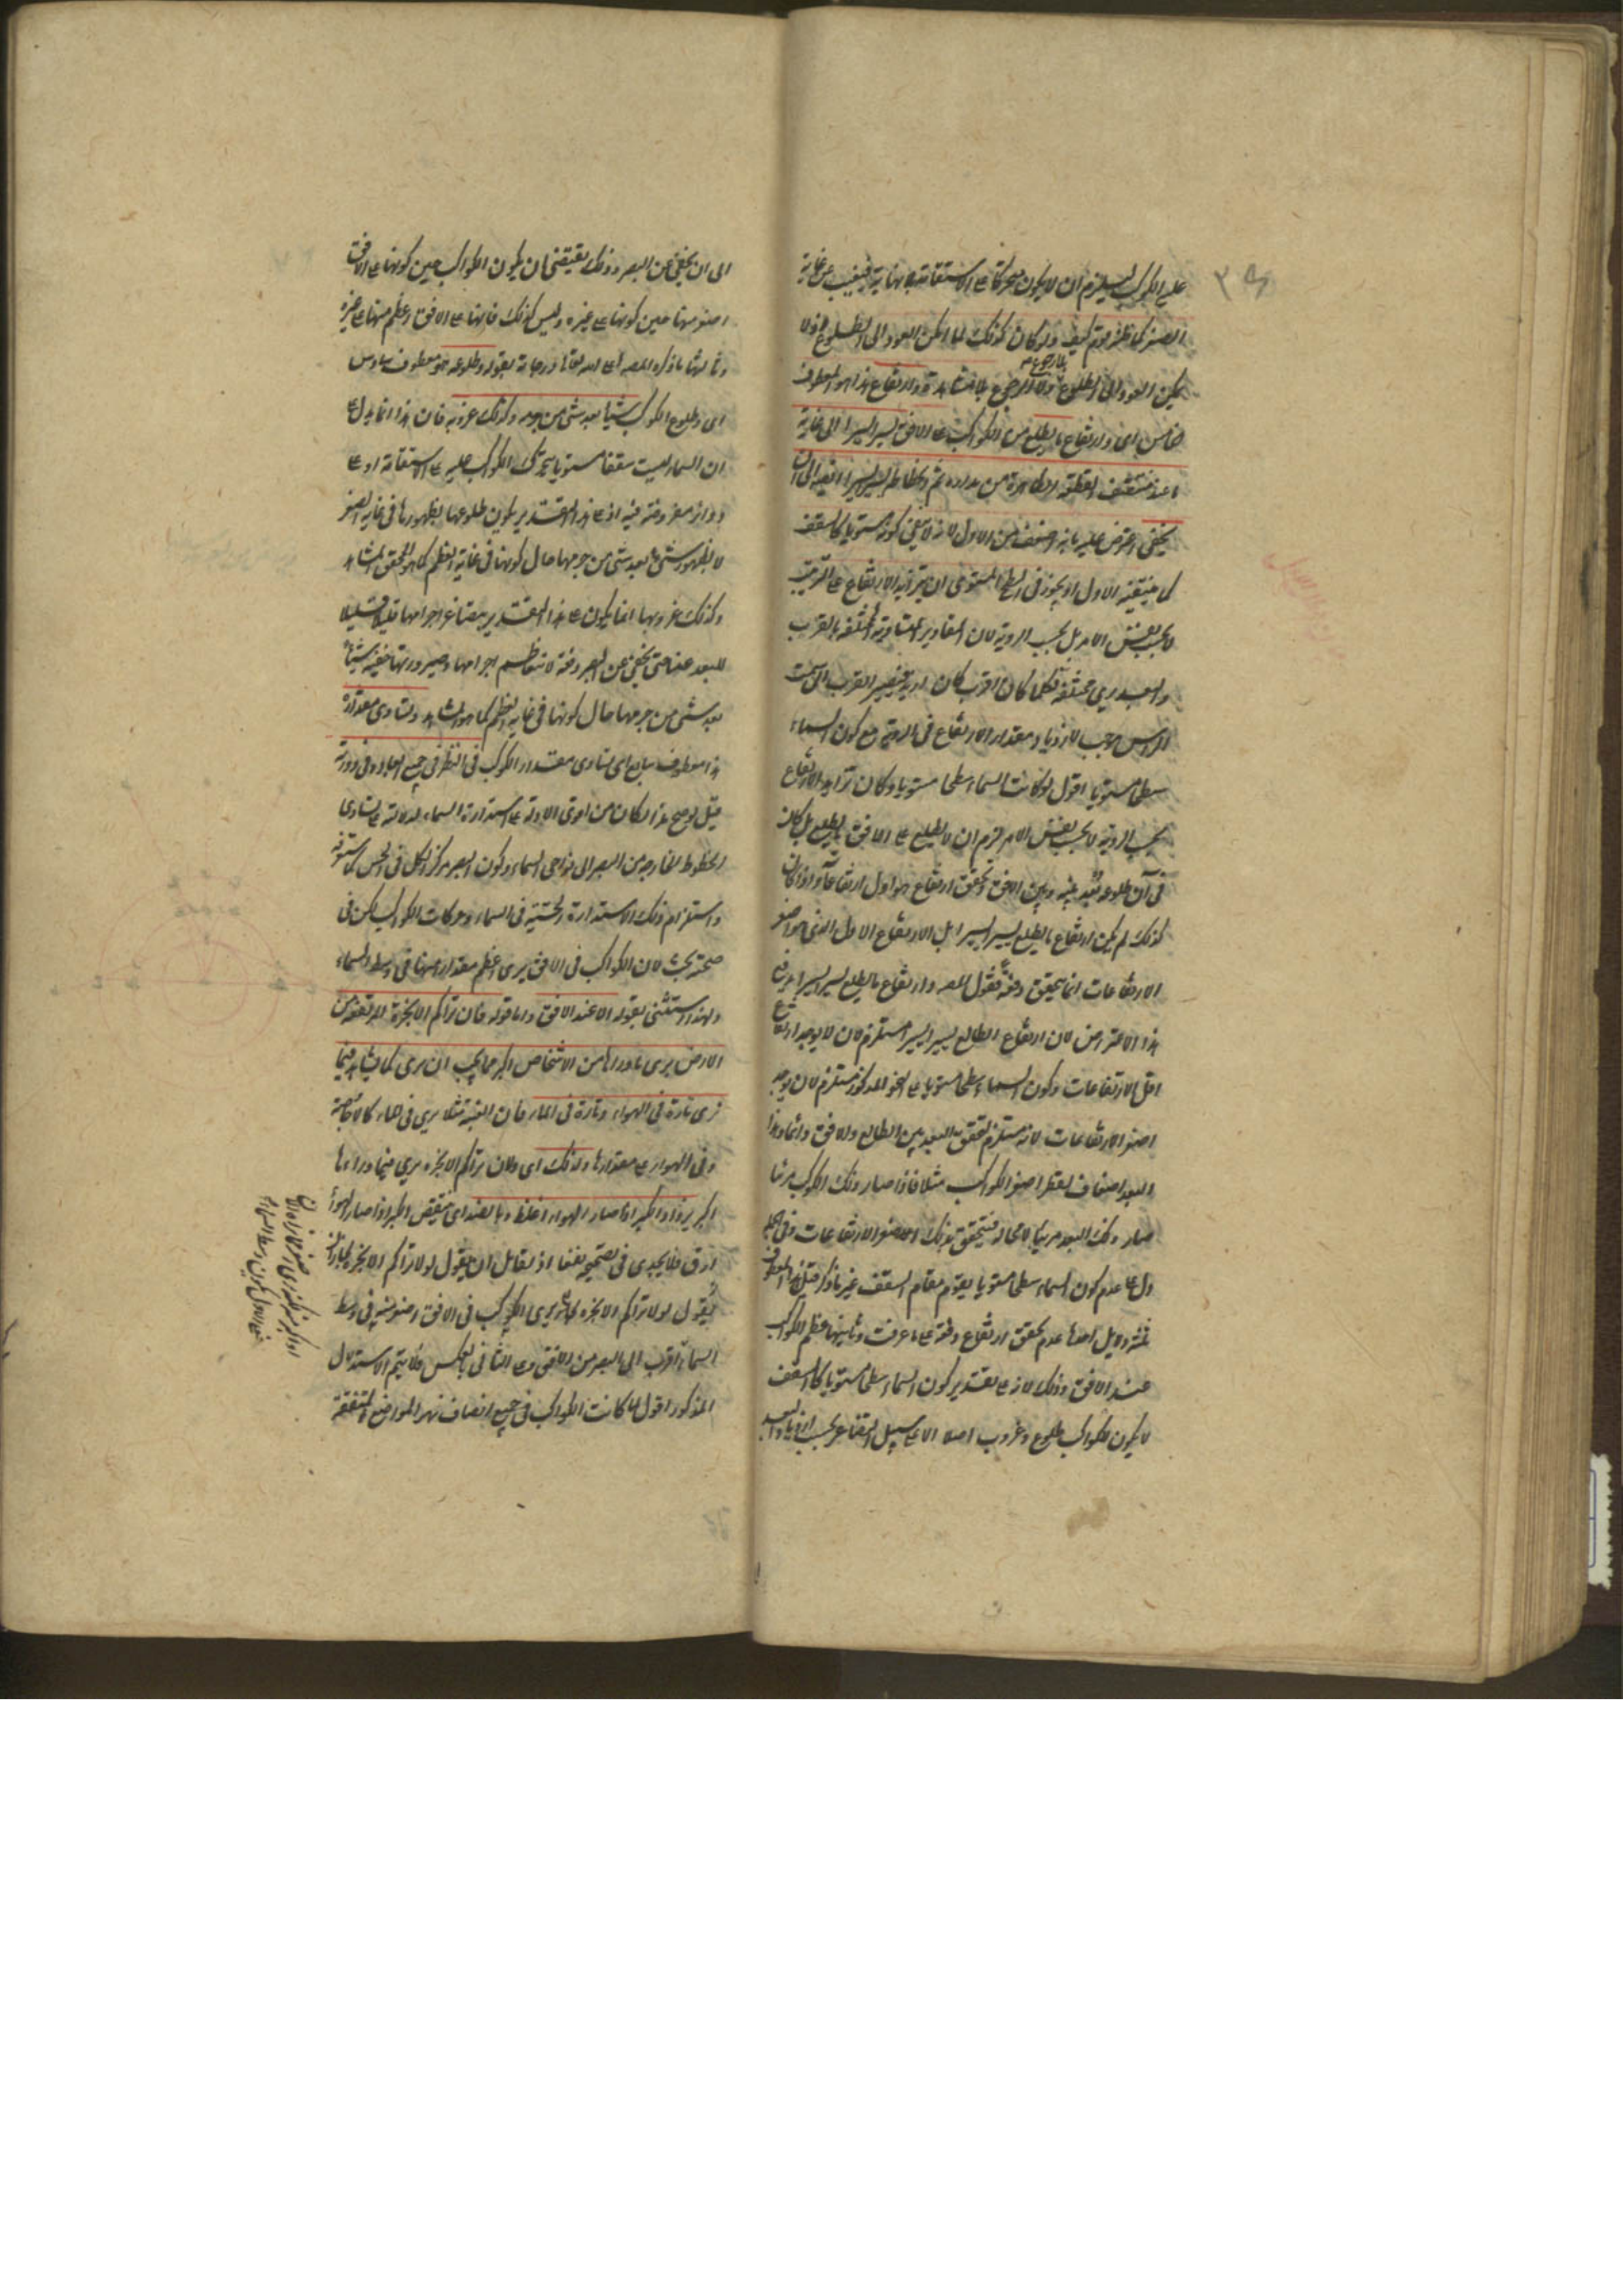 ٣٤
علي الكوكب ليلزم ان لا يكون متحركا على الاستقامة بلا نهاية فيغيب من غاية
الصغر كما ظنه قوم كيف ولو كان كذلك لما امكن العود الى الطلوع اذ لا
بلا رجوع
يمكن العود الى الطلوع ولا الرجوع بلا مشاهدة وارتفاع هذا هو المعطوف
خامس اى وارتفاع ما يطلع من الكواكب على الافق يسيرا يسيرا الى غاية
ما عند منتصف القطعة الظاهرة من مداره ثم انحطاطه يسيرا يسيرا الى ان
يختفى اعترض عليه بانه اضعف من الاول لانه لا ينفي كونه مستويا كالسقف
كما ينفيه الاول اذ يجوز فى السطح المستوى ان يتزايد الارتفاع على الترتيب
لا بحسب نفس الامر بل بحسب الروية لان المقادير المتساوية المختلفة بالقرب
والبعد يري مختلفة فكلما كان اقرب كان ازيد فيصير القرب الى سمت
الراس موجب لازدياد مقدار الارتفاع فى الروية مع كون السماء
سطحا مستويا اقول لو كانت السماء سطحا مستويا وكان تزايد الارتفاع
بحسب الروية لا بحسب نفس الامر لزم ان لا يطلع على الافق ما يطلع بل كان
فى آن طلوعه بعد بينه وبين الافق وتحقق ارتفاع هو اول ارتفاعاته واذا كان
كذلك لم يكن ارتفاع ما يطلع يسيرا يسيرا بل الارتفاع الاول الذى هو اصغر
الارتفاعات انما يتحقق دفعة فقول المصـ وارتفاع ما يطلع يسيرا يسيرا يدفع
هذا الاعتراض لان ارتفاع الطالع يسيرا يسيرا مستلزم لان لا يوجد ارتفاع
اقل الارتفاعات وكون السماء سطحا مستويا على النحو المذكور مستلزم لان يوجد
اصغر الارتفاعات لانه مستلزم لتحقق البعد بين الطالع والافق دائما وهذا
البعد اضعاف لقطر اصغر الكواكب مثلا فاذا صار ذلك الكوكب مرئيا
صار ذلك البعد مرئيا لا محالة فيتحقق بذلك اصغر الارتفاعات وفى الجملة
دل على عدم كون السماء سطحا مستويا يقوم مقام السقف غير ما ذكر قبل هذا المعطوف
ثلثة دلايل احدها عدم تحقق ارتفاع دفعة على ما عرفت وثانيها عظم الكواكب
عند الافق وذلك لانه على تقدير كون السماء سطحا مستويا كالسقف
لا يكون للكواكب طلوع وغروب اصلا الا على سبيل التصاغر بحسب ازدياد البعد
الى ان يختفى عن البصر وذلك يقتضى ان يكون الكواكب حين كونها على الافق
اصغر منها حين كونها على غيره وليس كذلك فانها على الافق اعظم منها على غيره
وثالثها ما ذكره المصـ اعلى الله تعالى درجاته بقوله وطلوعه هو معطوف سادس
اى وطلوع الكوكب شيئا بعد شئ من جرمه وكذلك غروبه فان هذا انما يدل على
ان السماء ليست سقفا مستويا يتحرك الكواكب عليه على الاستقامة او على
دواير مفروضة فيه اذ على هذا التقدير يكون طلوعها بظهورها فى غاية الصغر
لا بظهور شئ بعد شئ من جرمها حال كونها فى غاية العظم كما هو المحقق المشاهد
وكذلك غروبها انما يكون على هذا التقدير بتصاغر اجرامها قليلا قليلا
للبعد عنا حتى يختفى عن البصر دفعة لا بتعاظم اجرامها وصيرورتها خفية شيئا
بعد شئ من جرمها حال كونها فى غاية العظم كما هو المشاهد وتساوى مقداره
هذا معطوف سابع اى تساوى مقدار الكوكب فى النظر فى جميع ابعاده وفى دورته
قيل لو صح هذا لكان من اقوى الادلة على استدارة السماء لدلالته على تساوى
الخطوط الخارجة من البصر الى نواحى السماء وكون البصر مركز الكل فى الحس
واستلزام ذلك الاستدارة الحسية فى السماء وحركات الكواكب لكن فى
صحته بحث لان الكواكب فى الافق يرى اعظم مقدارا منها فى وسط السماء
ولهذا استثنى بقوله الا عند الافق واما قوله فان تراكم الابخرة المرتفعة من
الارض يرى ما وراها من الاشخاص اكبر مما يجب ان يرى كما يشاهد فيما
نرى تارة فى الهواء وتارة فى الماء فان العنبة مثلا يرى فى الماء كالاجاصة
وفى الهواء على مقدارها ولذلك اى ولان تراكم الابخرة يري فيما وراءها
اكبر يزداد الكبر اذا صار الهواء اغلظ وبالضد اى ينقص الكبر اذا صار الهواء
ارق فلا يجدى فى تصحيحه نفعا اذ لقائل ان يقول لولا تراكم الابخرة
يقول لولا تراكم الابخرة يرى الكوكب فى الافق اصغر منه فى وسط
السماء اقرب الى البصر من الافق وعلى الثانى بالعكس فلا يتم الاستدلال
المذكور اقول لما كانت الكواكب فى جميع انصاف نهر المواضع المتفقة